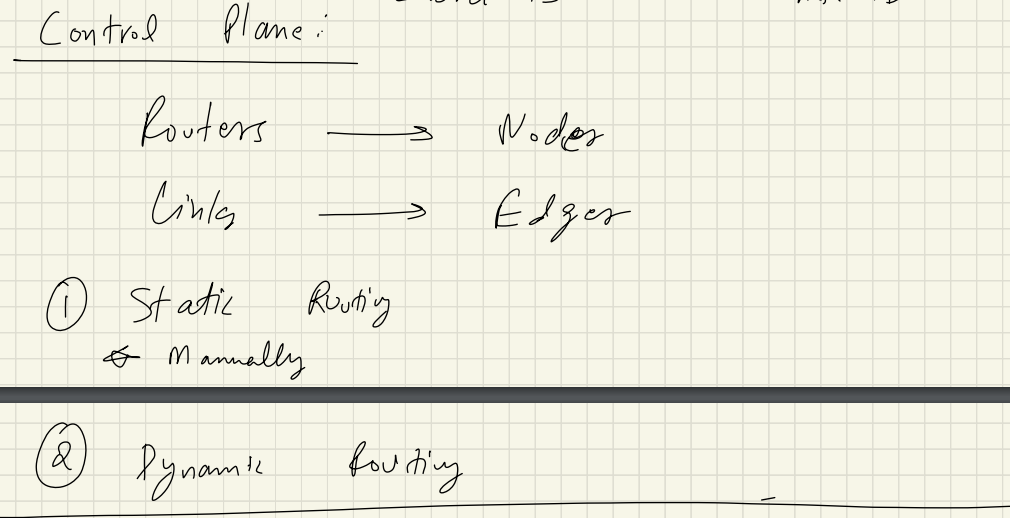 Control Plane:
Routers → Nodes
Links → Edges
① Static Routing
Mannually
② Dynamic Routing